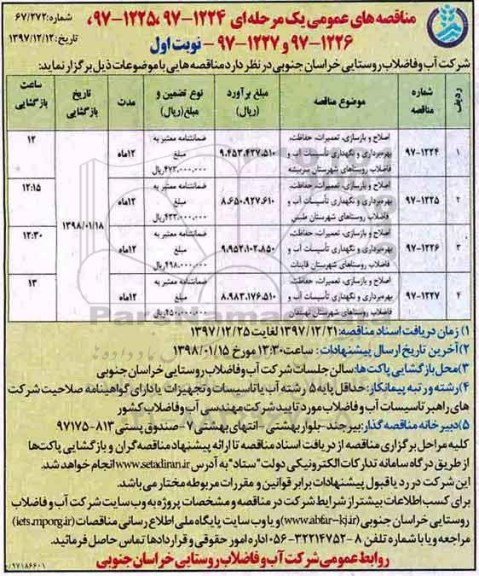 مناقصه های عمومی یک مرحله ای ۱۲۲۴-۹۷، ۱۲۲۵-۹۷،
۱۲۲۶-۹۷ و ۱۲۲۷-۹۷ - نوبت اول
شماره: ۶۷/۲۷۲
تاریخ: ۱۳۹۷/۱۲/۱۲
شرکت آب و فاضلاب روستایی خراسان جنوبی در نظر دارد مناقصه هایی با موضوعات ذیل برگزار نماید:
ردیف شماره مناقصه موضوع مناقصه مبلغ برآورد (ریال) نوع تضمین و مبلغ (ریال) مدت تاریخ بازگشایی ساعت بازگشایی
۱ ۹۷-۱۲۲۴ اصلاح و بازسازی، تعمیرات، حفاظت، بهره‌برداری و نگهداری تأسیسات آب و فاضلاب روستاهای شهرستان سربیشه ۹.۴۵۳.۴۲۷.۵۱۰ ضمانتنامه معتبر به مبلغ ۴۷۳.۰۰۰.۰۰۰ریال ۱۲ماه ۱۲
۲ ۹۷-۱۲۲۵ اصلاح و بازسازی، تعمیرات، حفاظت، بهره‌برداری و نگهداری تأسیسات آب و فاضلاب روستاهای شهرستان طبس ۸.۶۵۰.۹۲۷.۶۱۰ ضمانتنامه معتبر به مبلغ ۴۳۳.۰۰۰.۰۰۰ریال ۱۲ماه ۱۲:۱۵
۱۳۹۸/۰۱/۱۸
۳ ۹۷-۱۲۲۶ اصلاح و بازسازی، تعمیرات، حفاظت، بهره‌برداری و نگهداری تأسیسات آب و فاضلاب روستاهای شهرستان قاینات ۹.۹۵۲.۱۰۲.۸۵۰ ضمانتنامه معتبر به مبلغ ۴۹۸.۰۰۰.۰۰۰ریال ۱۲ماه ۱۲:۳۰
۴ ۹۷-۱۲۲۷ اصلاح و بازسازی، تعمیرات، حفاظت، بهره‌برداری و نگهداری تأسیسات آب و فاضلاب روستاهای شهرستان نهبندان ۸.۹۸۳.۱۷۶.۵۱۰ ضمانتنامه معتبر به مبلغ ۴۵۰.۰۰۰.۰۰۰ریال ۱۲ماه ۱۳
۱) زمان دریافت اسناد مناقصه: ۱۳۹۷/۱۲/۲۱ لغایت ۱۳۹۷/۱۲/۲۵
۲) آخرین تاریخ ارسال پیشنهادات : ساعت ۱۳:۳۰ مورخ ۱۳۹۸/۰۱/۱۵
۳) محل بازگشایی پاکت ها: سالن جلسات شرکت آب و فاضلاب روستایی خراسان جنوبی
۴) رشته و رتبه پیمانکار: حداقل پایه ۵ رشته آب یا تاسیسات و تجهیزات یا دارای گواهینامه صلاحیت شرکت
های راهبر تاسیسات آب و فاضلاب مورد تایید شرکت مهندسی آب و فاضلاب کشور
۵) دبیرخانه مناقصه گذار: بیرجند- بلوار بهشتی - انتهای بهشتی ۷ - صندوق پستی ۸۱۳-۹۷۱۷۵
کلیه مراحل برگزاری مناقصه از دریافت اسناد مناقصه تا ارائه پیشنهاد مناقصه گران و بازگشایی پاکت ها
از طریق درگاه سامانه تدارکات الکترونیکی دولت "ستاد" به آدرس www.setadiran.ir انجام خواهد شد.
این شرکت در رد یا قبول پیشنهادات برابر قوانین و مقررات مربوطه مختار می باشد.
برای کسب اطلاعات بیشتر از شرایط شرکت در مناقصه و مشخصات پروژه به وب سایت شرکت آب و فاضلاب
روستایی خراسان جنوبی (www.abfar-kj.ir) و یا وب سایت پایگاه ملی اطلاع رسانی مناقصات (iets.mporg.ir)
مراجعه و یا با شماره تلفن ۸-۳۲۲۱۴۷۵۲-۰۵۶ اداره امور حقوقی و قراردادها تماس حاصل فرمائید.
روابط عمومی شرکت آب و فاضلاب روستایی خراسان جنوبی